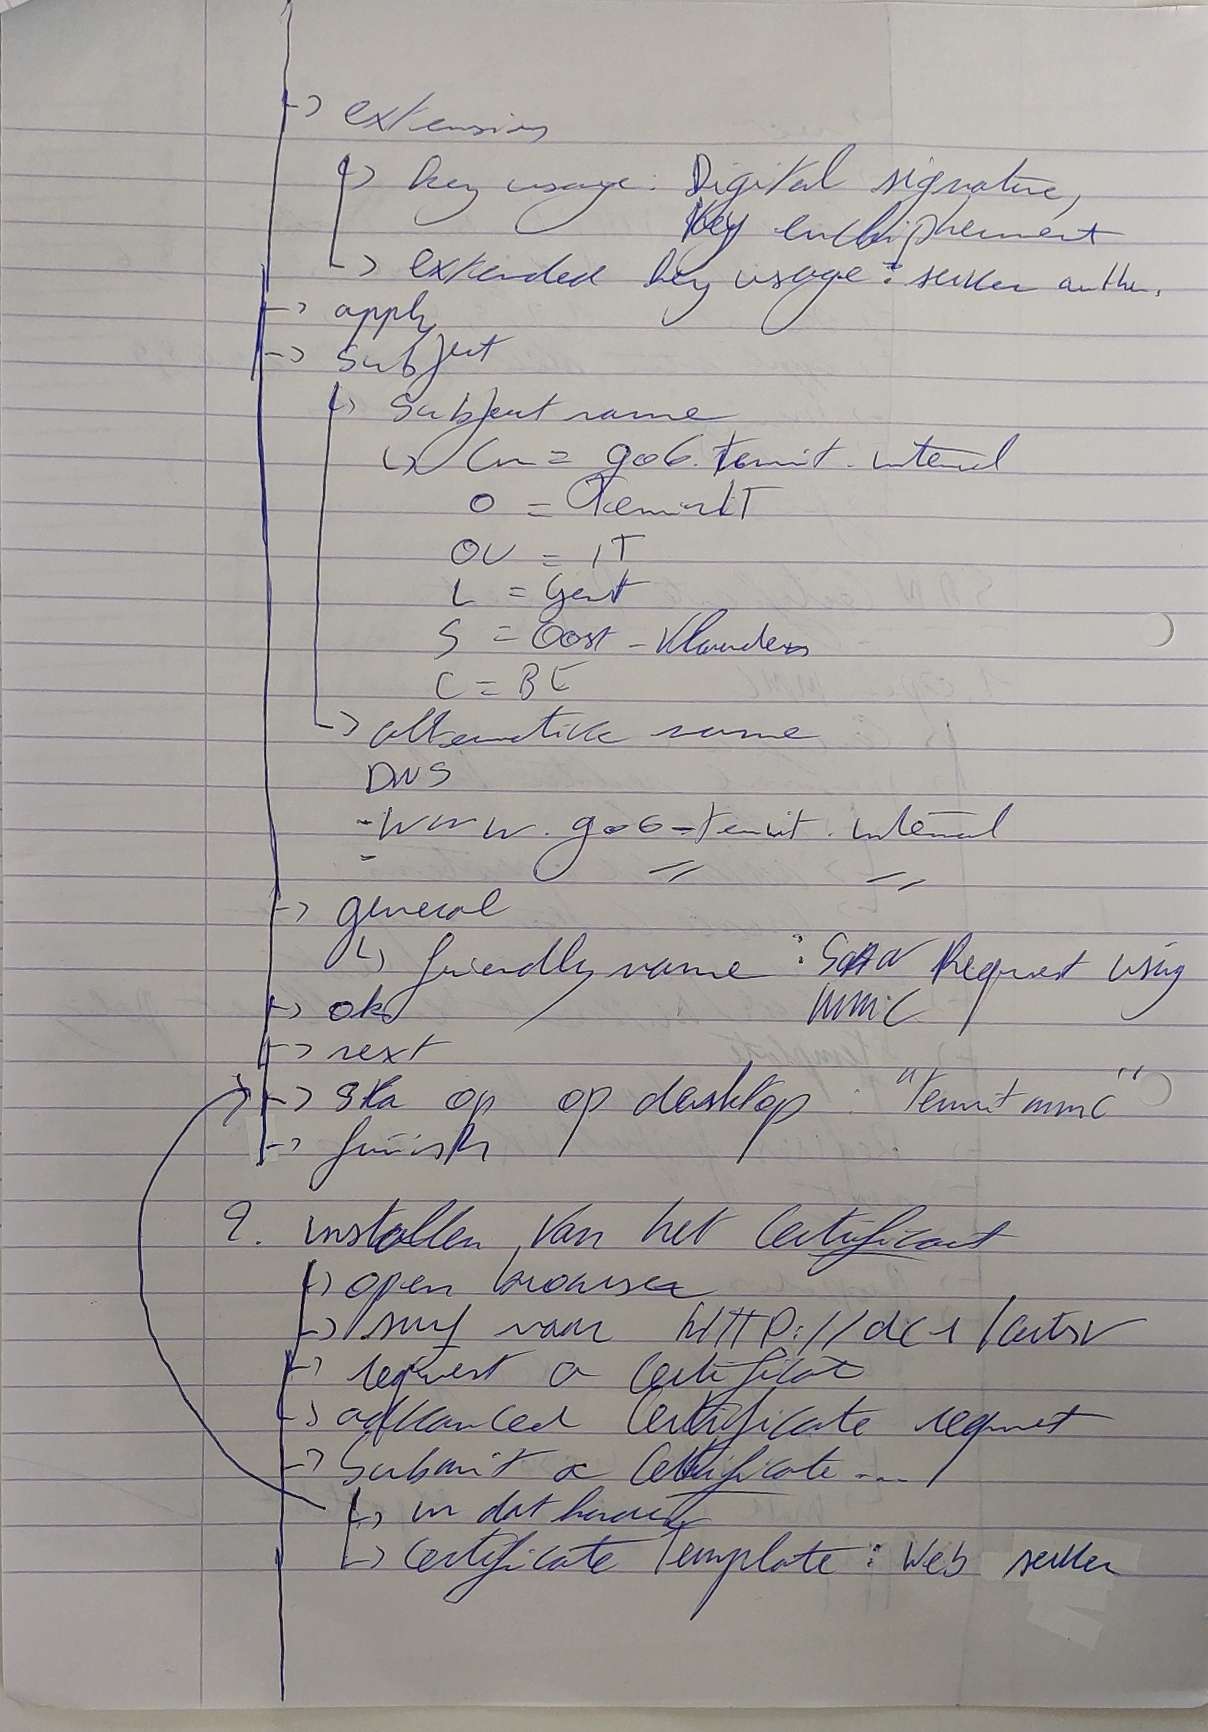 -> extension
-> key usage: Digital signature,
key enchipherment
-> extended key usage: server auth.
-> apply
-> subject
-> subject name
-> Cn = go6.temit.internal
O = TemitIT
OU = IT
L = Gent
S = Oost-Vlaanderen
C = BE
-> alternative name
DNS
- www.go6-temit.internal
- // //
-> general
-> friendly name: SAN Request using
MMC
-> ok
-> next
-> sla op op desktop: "temit mmc"
-> finish
2. installen van het certificaat
-> open browser
-> surf naar HTTP://dc1/certsrv
-> request a certificat
-> advanced certificate request
-> Submit a certificate ...
-> in dat
-> certificate Template: Web server